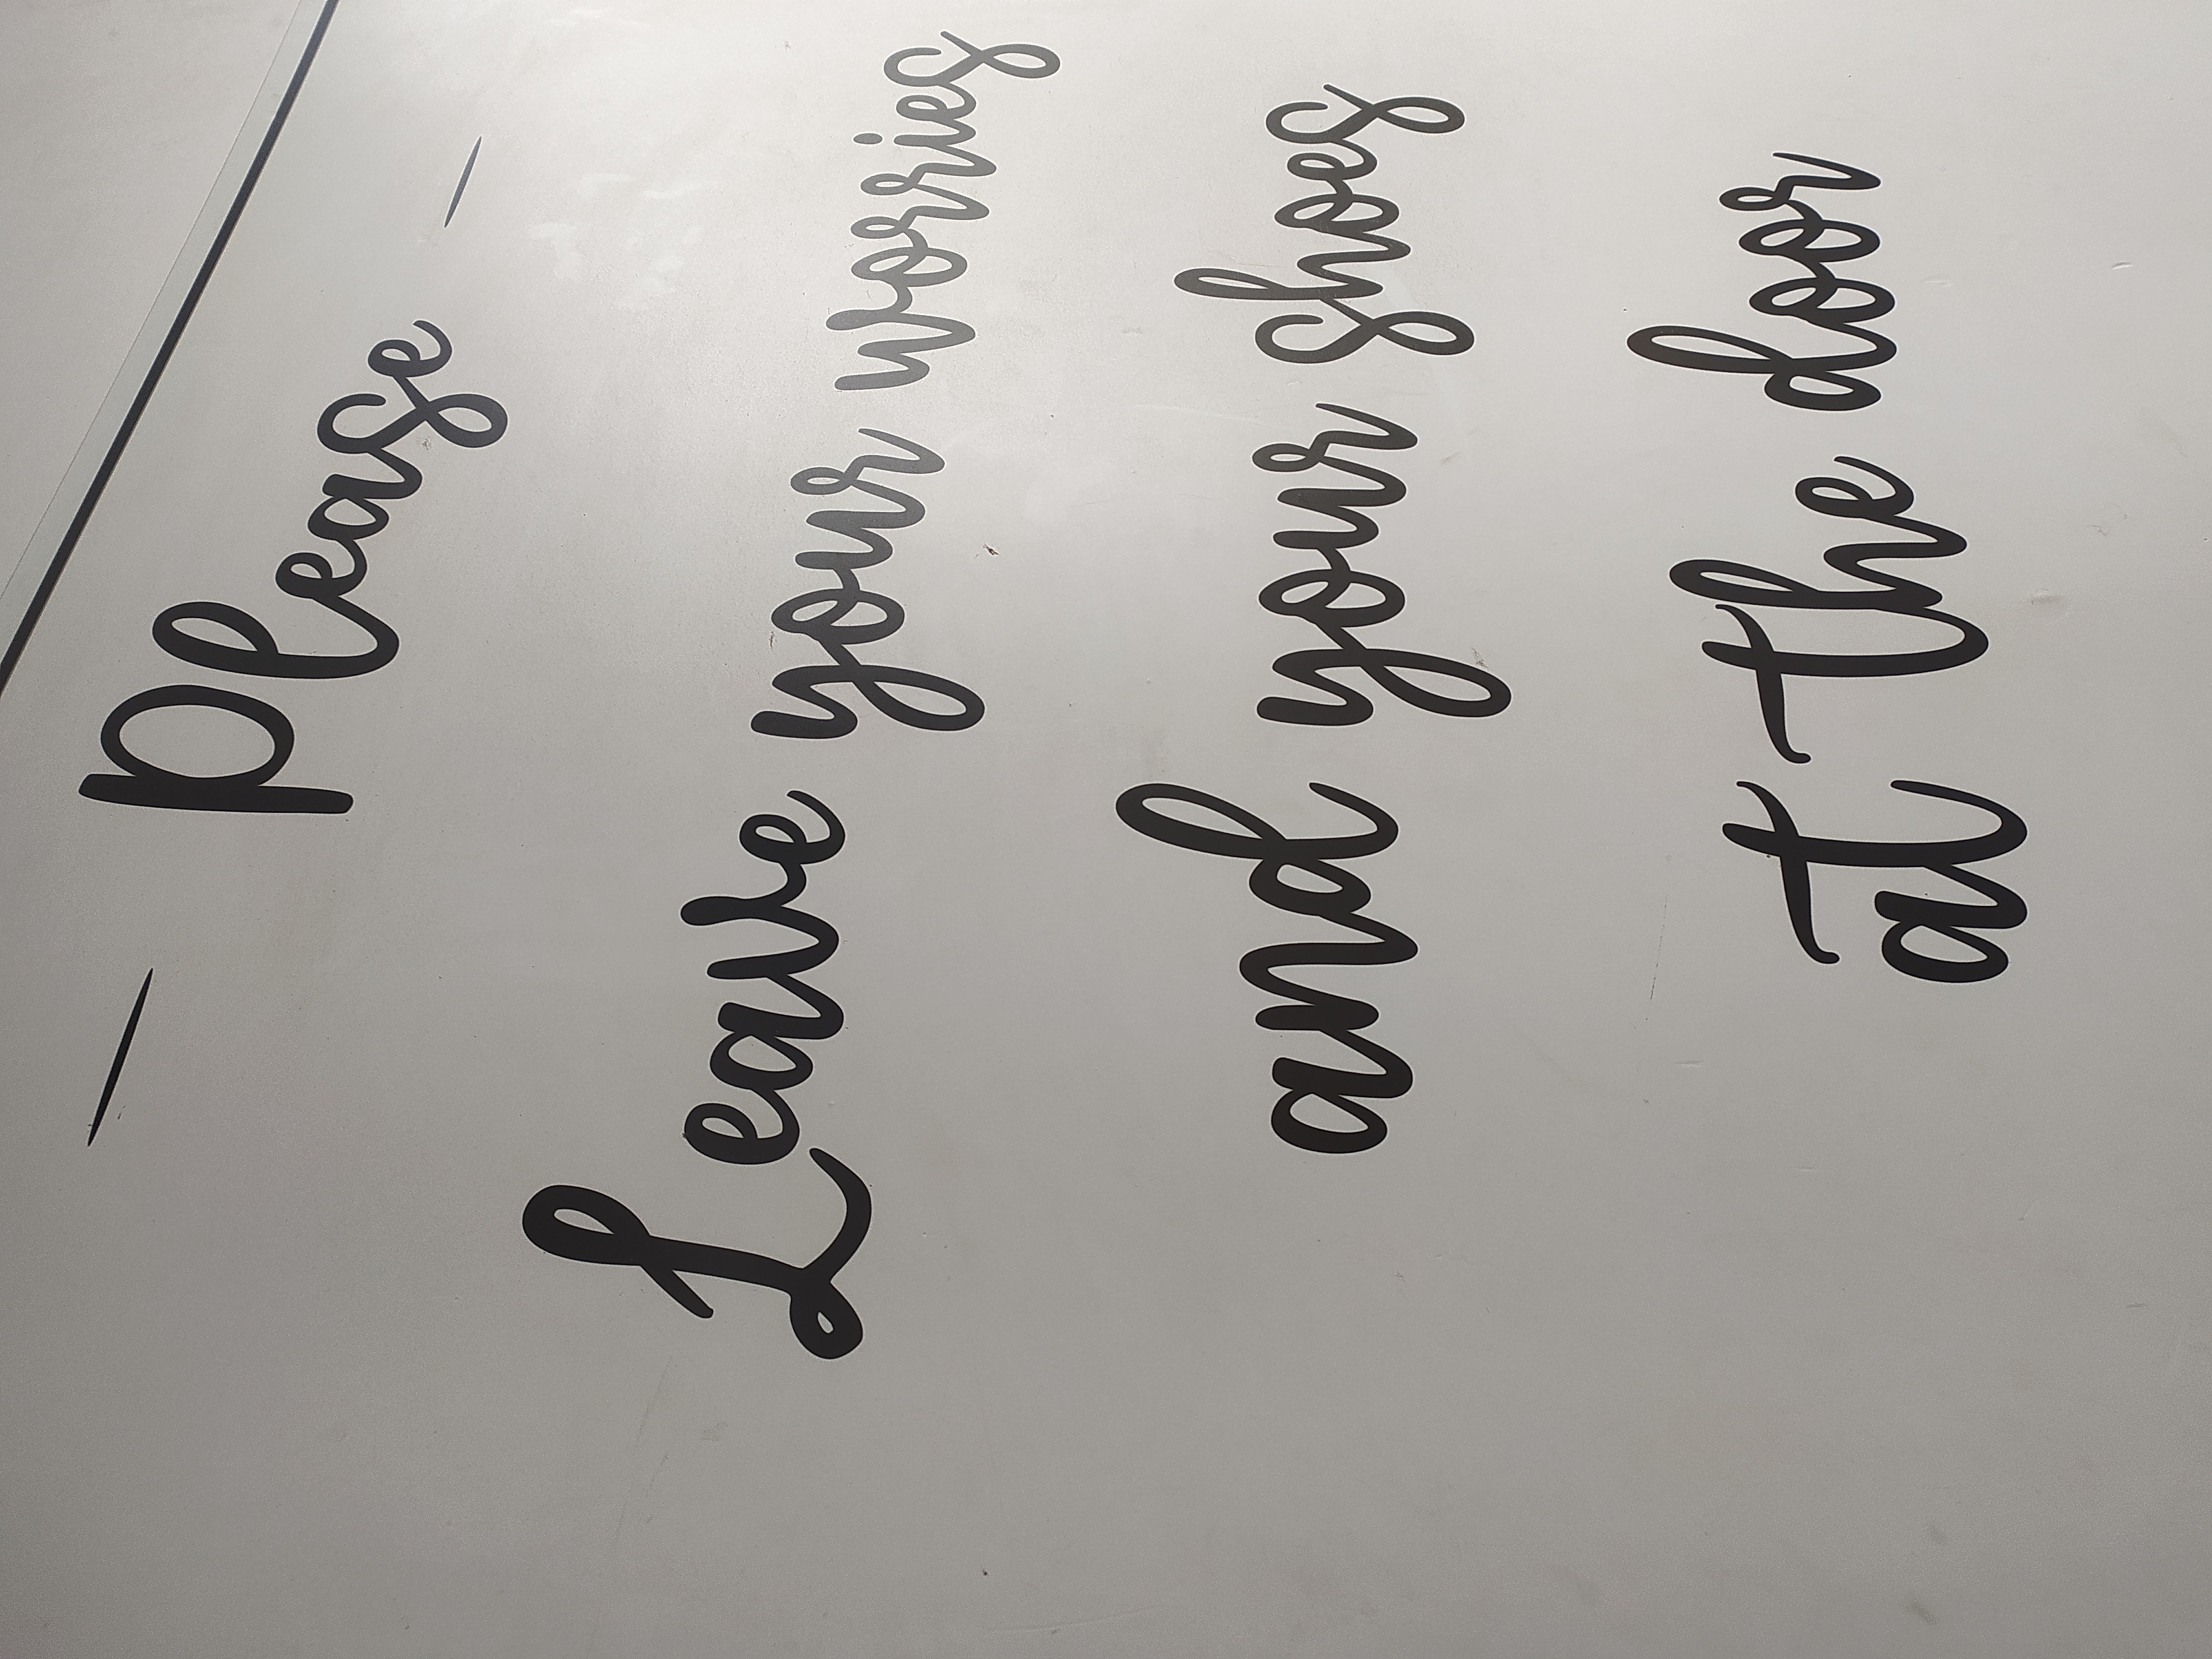 - please -
Leave your worries
and your shoes
at the door